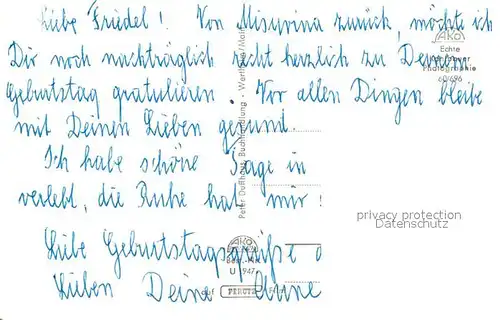 Liebe Friedel! Von Misurina zurück, möcht ich
Dir noch nachträglich recht herzlich zu Deinem
Geburtstag gratulieren. Vor allen Dingen bleibe
mit Deinen Lieben gesund.
Ich habe schöne Tage in
verlebt, die Ruhe hat mir!
Liebe Geburtstagsgrüße
Lieben Deine Anne
AKO
Echte
Photographie
60/696
Peter Buchhandlung - Wertheim/Main
AKO
U 947
auf PERUTZ
privacy protection
Datenschutz